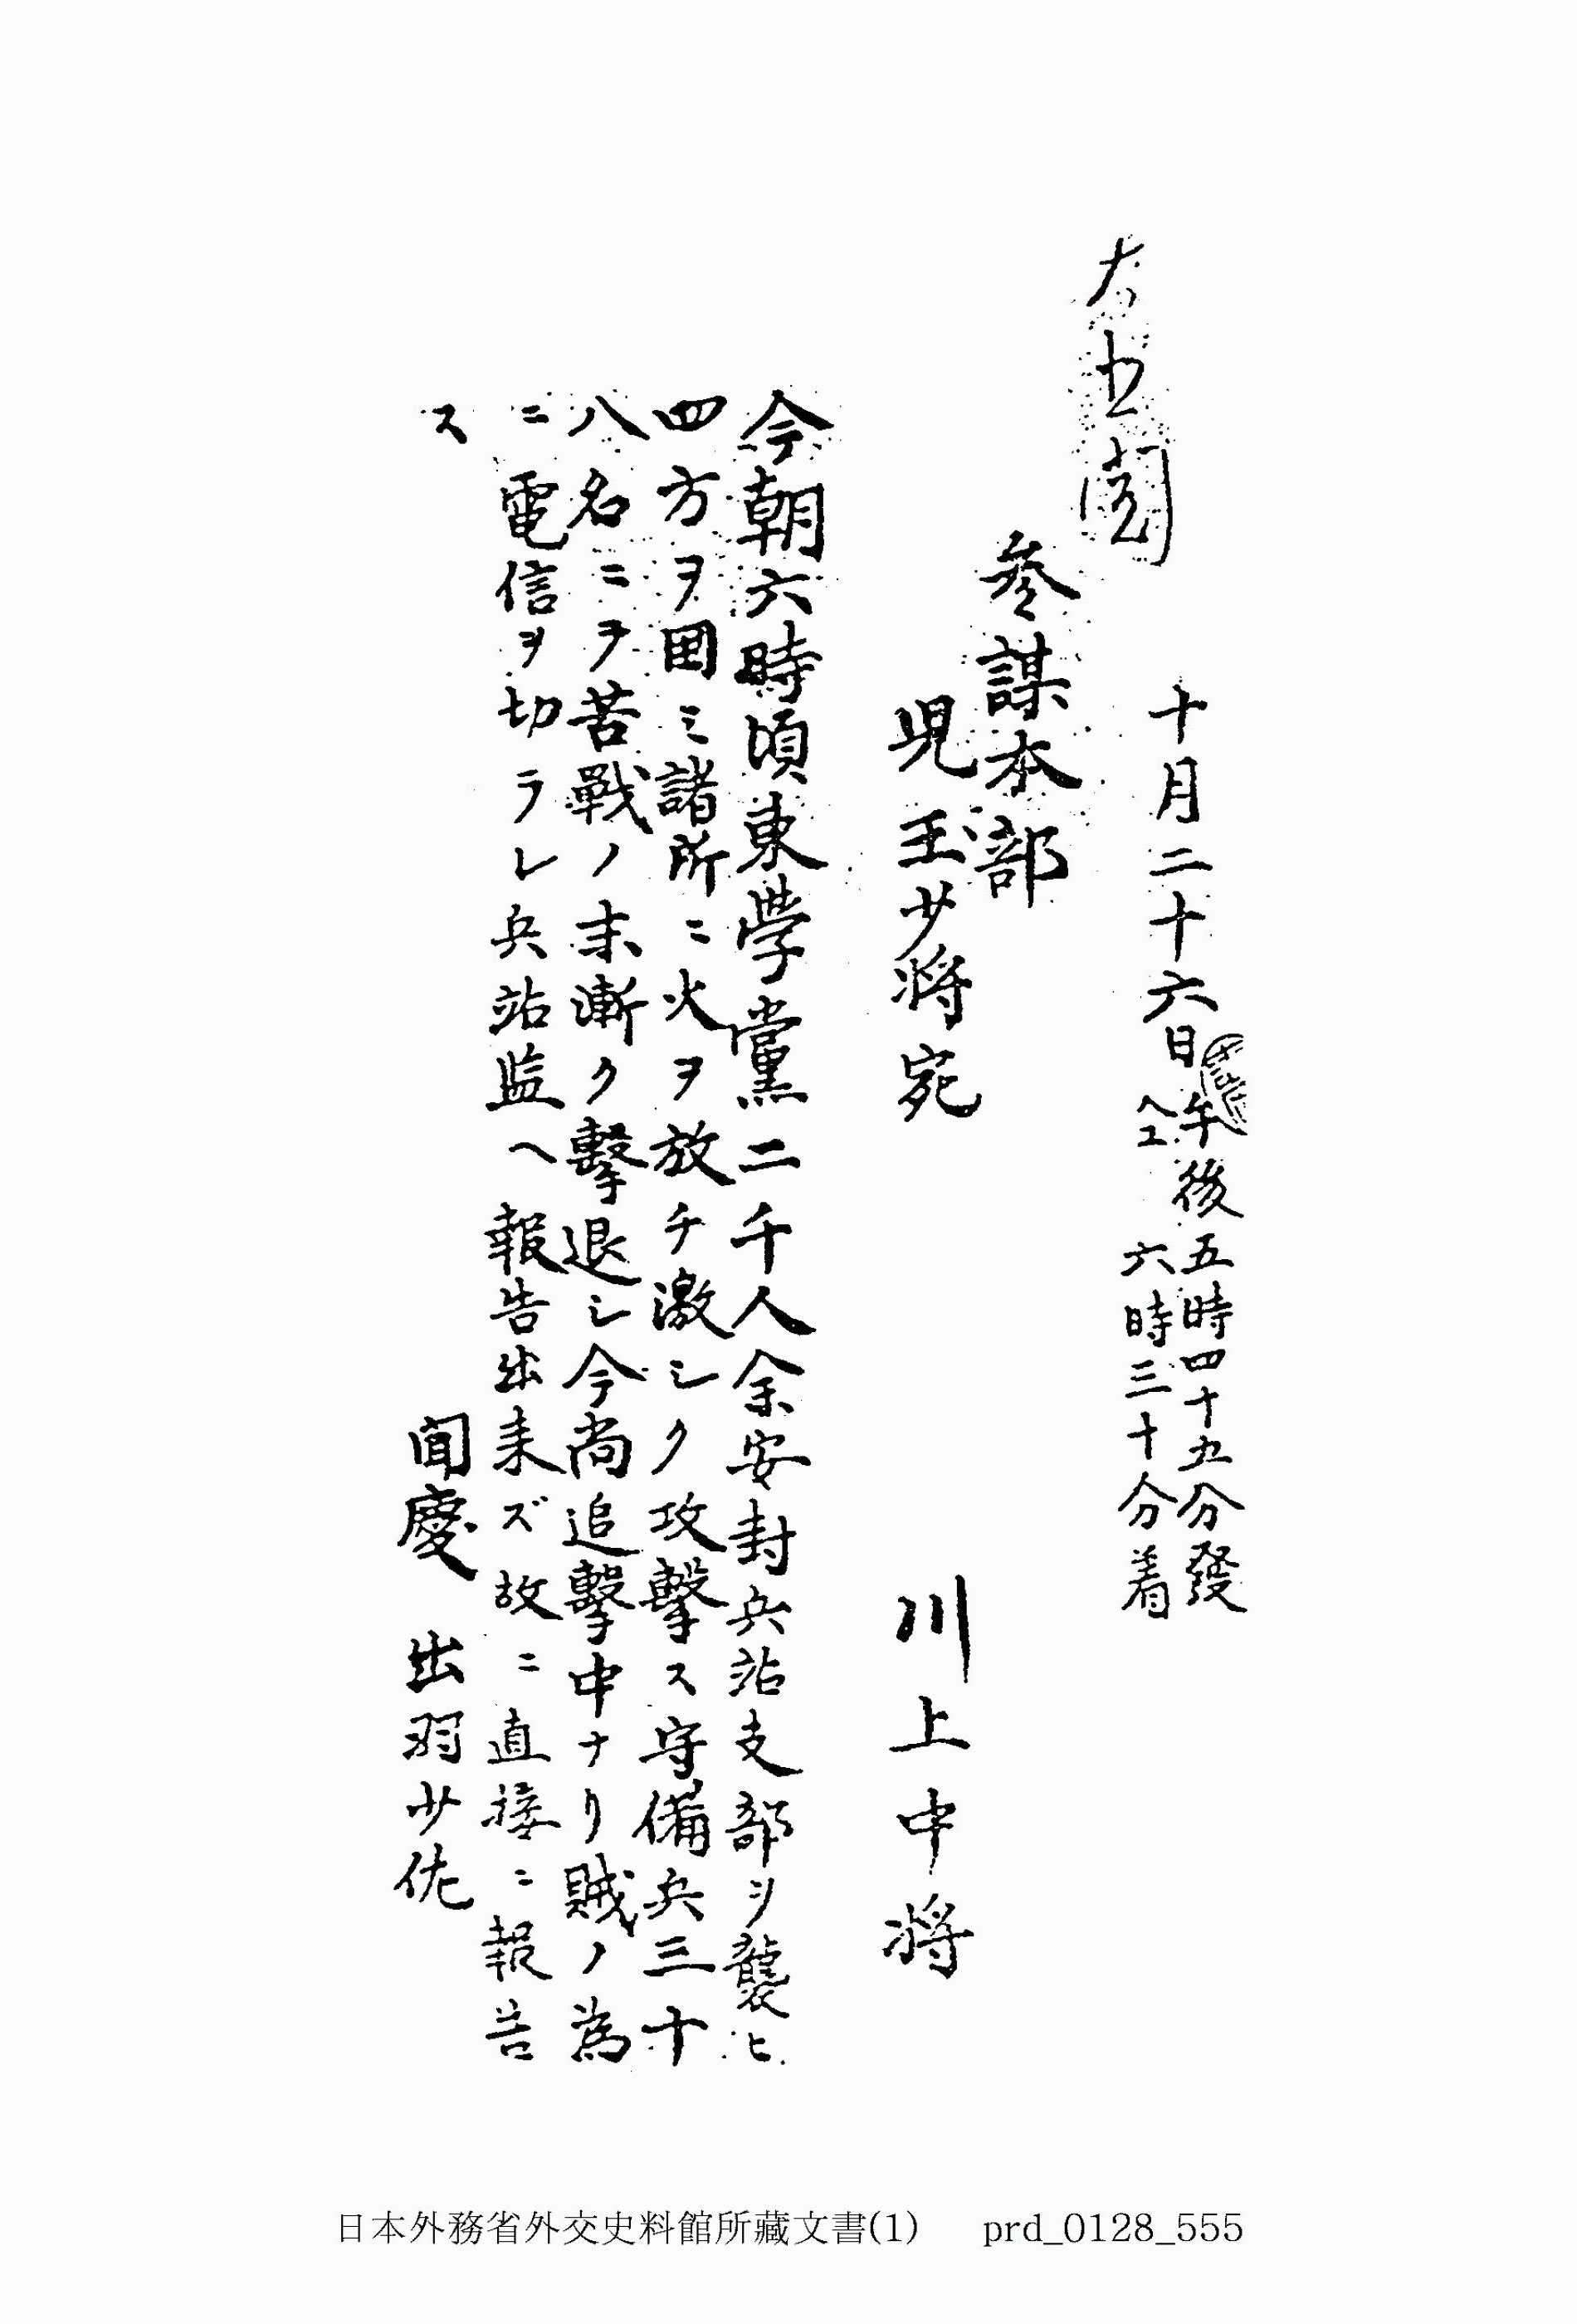 十月二十六日
午後五時四十五分發
仝 六時三十分着
參謀本部
児玉少将宛
川上中将
今朝六時頃東學黨二千人余安封兵站支部ヲ襲ヒ
四方ヲ囲ミ諸所ニ火ヲ放チ激シク攻撃ス守備兵三十
八名ニテ苦戰ノ末漸ク撃退シ今尚追撃中ナリ賊ノ為
ニ電信ヲ切ラレ兵站監ヘ報告出来ズ故ニ直接ニ報告
ス
聞慶 出羽少佐
日本外務省外交史料館所藏文書(1) prd_0128_555